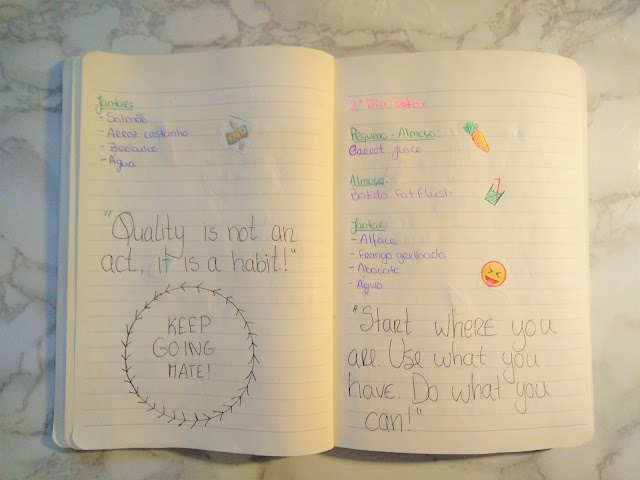 Jantar:
- Salmão
- Arroz castanho
- Brócolos
- Água
"Quality is not an
act, it is a habit!"
KEEP
GOING
MATE!
2º Dia Detox
Pequeno-Almoço:
Carrot juice
Almoço:
Batido fat flush
Jantar:
- Alface
- Frango grelhado
- Abacate
- Água
"Start where you
are. Use what you
have. Do what you
can!"